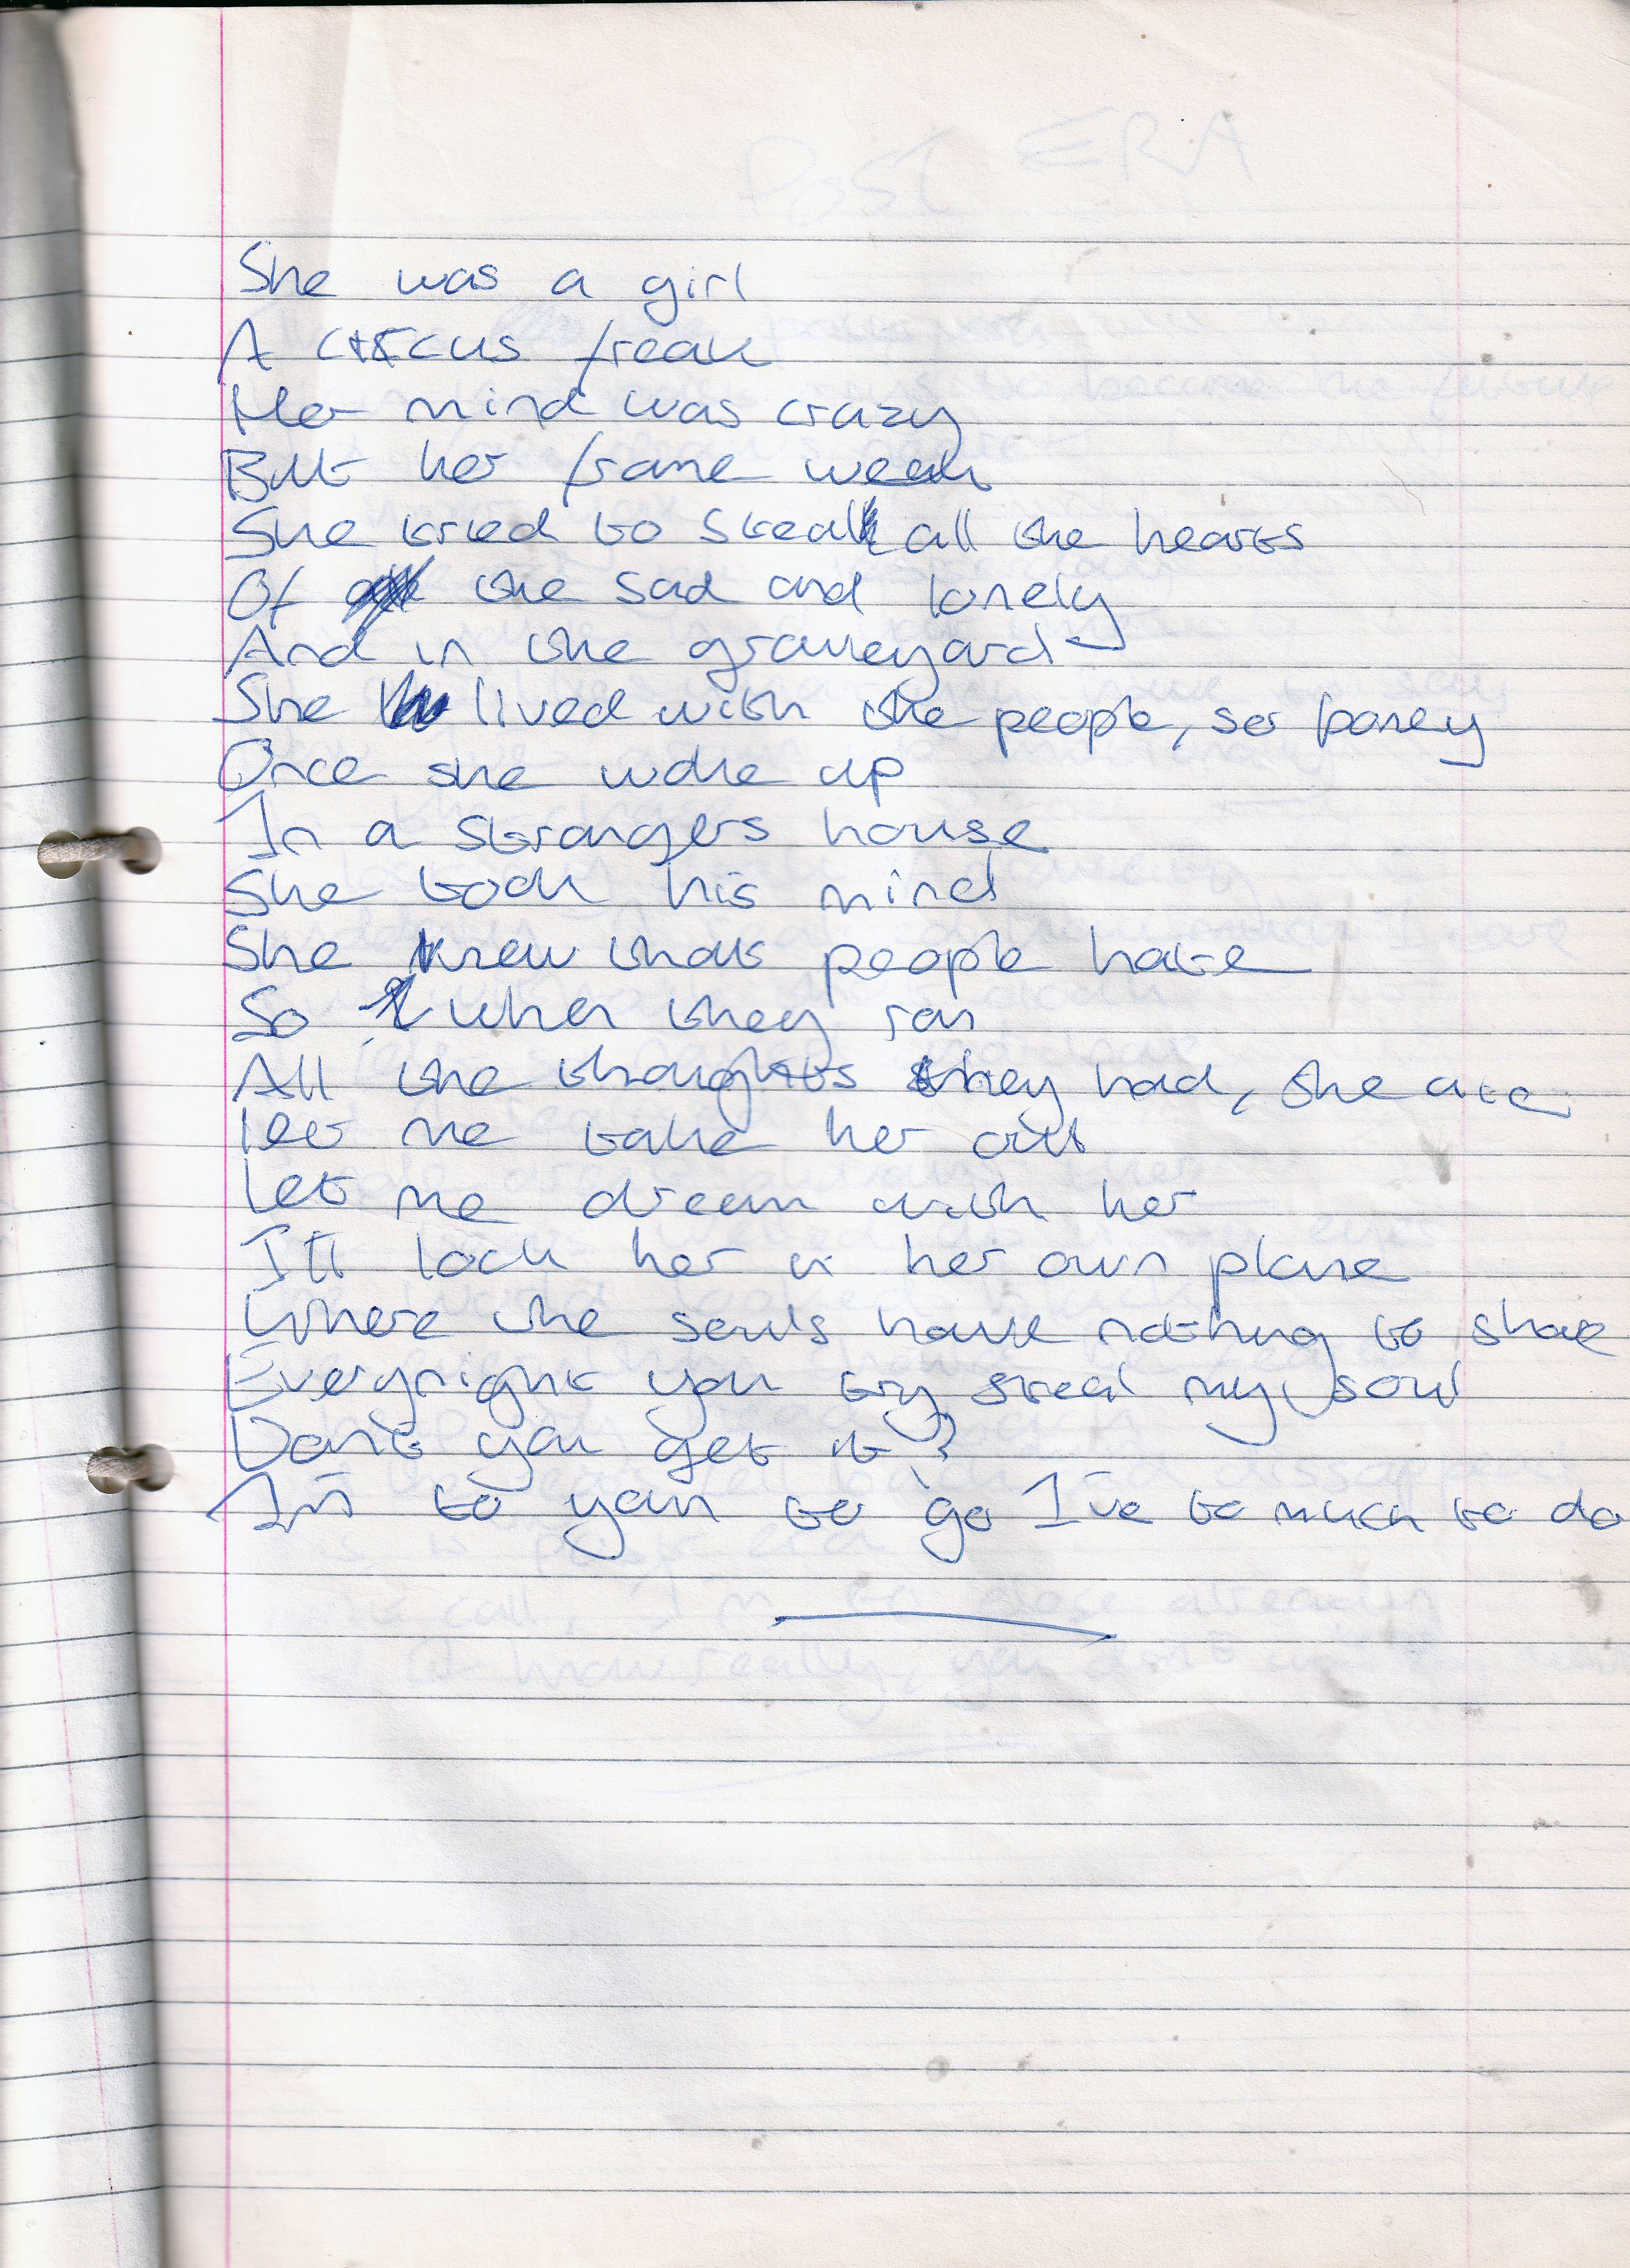 She was a girl
A circus freak
Her mind was crazy
But her frame weak
She tried to steal all the hearts
Of the sad and lonely
And in the graveyard
She lived with the people, so boney
Once she woke up
In a strangers house
She took his mind
She knew that people hate
So when they ran
All the thoughts they had, she ate
let me take her out
Let me dream with her
I'll lock her in her own plane
Where the souls have nothing to share
Everynight you try steal my soul
Don't you get it?
I'm to youn to go I've to much to do